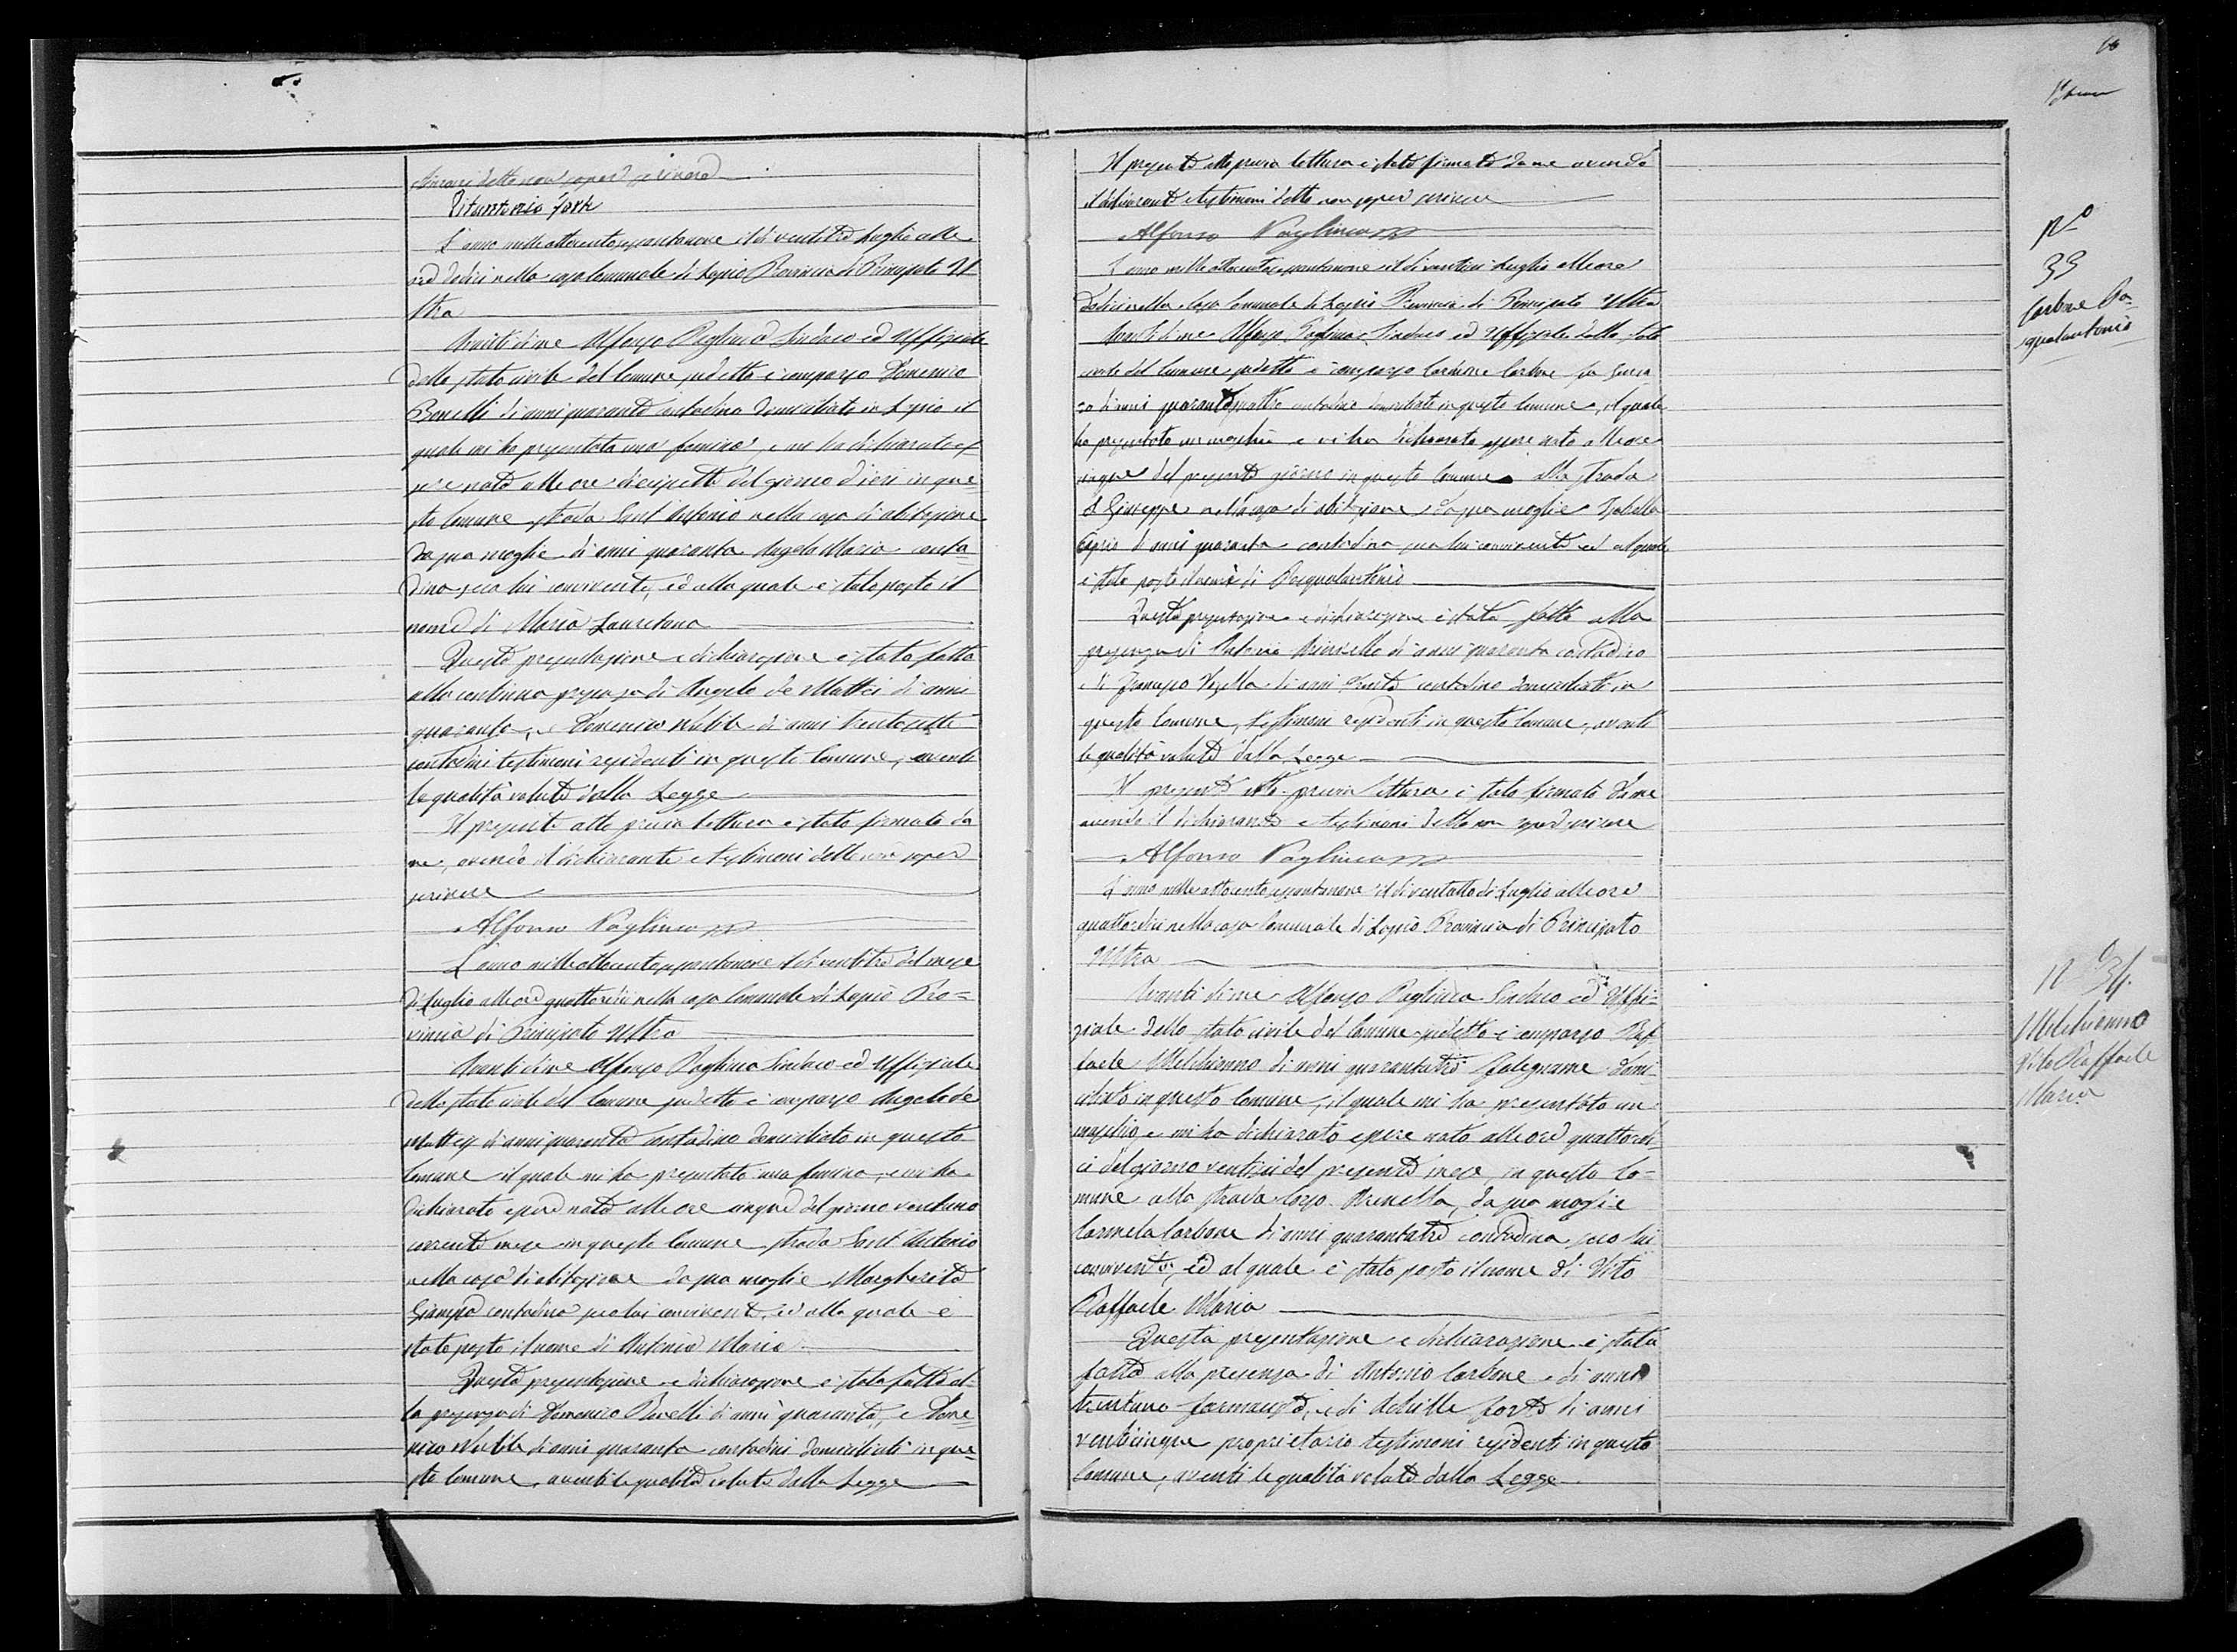 timoni detto non saper scrivere
Vitantonio Forte
L'anno milleottocentosessantanove il dì ventitre Luglio alle
ore dodici nella casa Comunale di Lapio Provincia di Principato Ul
tra
Avanti di me Alfonso Pagliuca Sindaco ed Uffiziale
dello stato civile del Comune sudetto è comparso Domenico
Bonelli di anni quaranta contadino domiciliato in Lapio il
quale mi ha presentata una femina, e mi ha dichiarato es
sere nata alle ore diecisette del giorno d'ieri in que=
sto Comune strada Sant'Antonio nella casa di abitazione
da sua moglie di anni quaranta Angela Maria conta=
dina seco lui convivente, ed alla quale è stato posto il
nome di Maria Lauretana
Questa presentazione e dichiarazione è stata fatta
alla continua presenza di Angelo de Mattei di anni
quaranta, e Domenico Nubile di anni trentasette
contadini testimoni residenti in questo Comune, aventi
le qualità volute dalla Legge
Il presente atto previa lettura è stato firmato da
me, avendo il dichiarante e testimoni detto non saper
scrivere
Alfonso Pagliuca
L'anno milleottocentosessantanove il dì ventitre del mese
di Luglio alle ore quattordici nella casa Comunale di Lapio Pro=
vincia di Principato Ultra
Avanti di me Alfonso Pagliuca Sindaco ed Uffiziale
dello stato civile del Comune sudetto è comparso Angelo de
Matteis di anni quaranta contadino domiciliato in questo
Comune il quale mi ha presentato una femina, e mi ha
dichiarato essere nata alle ore cinque del giorno ventuno
corrente mese in questo Comune strada Sant'Antonio
nella casa di abitazione da sua moglie Margherita
contadina seco lui convivente, ed alla quale è
stato posto il nome di Antonia Maria
Questa presentazione e dichiarazione è stata fatta al=
la presenza di Domenico Bonelli di anni quaranta, e Dome=
nico Nubile di anni quaranta contadini domiciliati in que=
sto Comune, aventi le qualità volute dalla Legge
Il presente atto previa lettura è stato firmato da me avendo
il dichiarante e testimoni detto non saper scrivere
Alfonso Pagliuca
L'anno milleottocentosessantanove il dì ventisei Luglio alle ore
dodici nella casa Comunale di Lapio Provincia di Principato Ultra
Avanti di me Alfonso Pagliuca Sindaco ed Uffiziale dello stato
civile del Comune sudetto è comparso Carbone fu
di anni quarantaquattro contadino domiciliato in questo Comune, il quale
ha presentato un maschio e mi ha dichiarato essere nato alle ore
cinque del presente giorno in questo Comune alla strada
S. Giuseppe nella casa di abitazione da sua moglie Isabella
di anni quaranta contadina seco lui convivente ed al quale
è stato posto il nome di Pasqualantonio
Questa presentazione e dichiarazione è stata fatta alla
presenza di Antonio di anni quaranta contadino
e di Francesco di anni trenta contadino domiciliati in
questo Comune, testimoni residenti in questo Comune, aventi
le qualità volute dalla Legge
Il presente atto previa lettura è stato firmato da me
avendo il dichiarante e testimoni detto non saper scrivere
Alfonso Pagliuca
L'anno milleottocentosessantanove il dì ventotto di Luglio alle ore
quattordici nella casa Comunale di Lapio Provincia di Principato
Ultra
Avanti di me Alfonso Pagliuca Sindaco ed Uffi=
ziale dello stato civile del Comune sudetto è comparso Raf
faele Melchionno di anni quarantatre falegname domi=
ciliato in questo Comune, il quale mi ha presentato un
maschio e mi ha dichiarato essere nato alle ore quattordi
ci del giorno ventisei del presente mese in questo Co=
mune alla strada Corso da sua moglie
Carmela Carbone di anni quarantatre contadina seco lui
convivente, ed al quale è stato posto il nome di Vito
Raffaele Maria
Questa presentazione e dichiarazione è stata
fatta alla presenza di Antonio Carbone di anni
trentuno farmacista, e di Achille Forte di anni
venticinque proprietario testimoni residenti in questo
Comune, aventi le qualità volute dalla Legge
N°
33
Carbone Pa=
squalantonio
N° 34.
Melchionno
Vito Raffaele
Maria